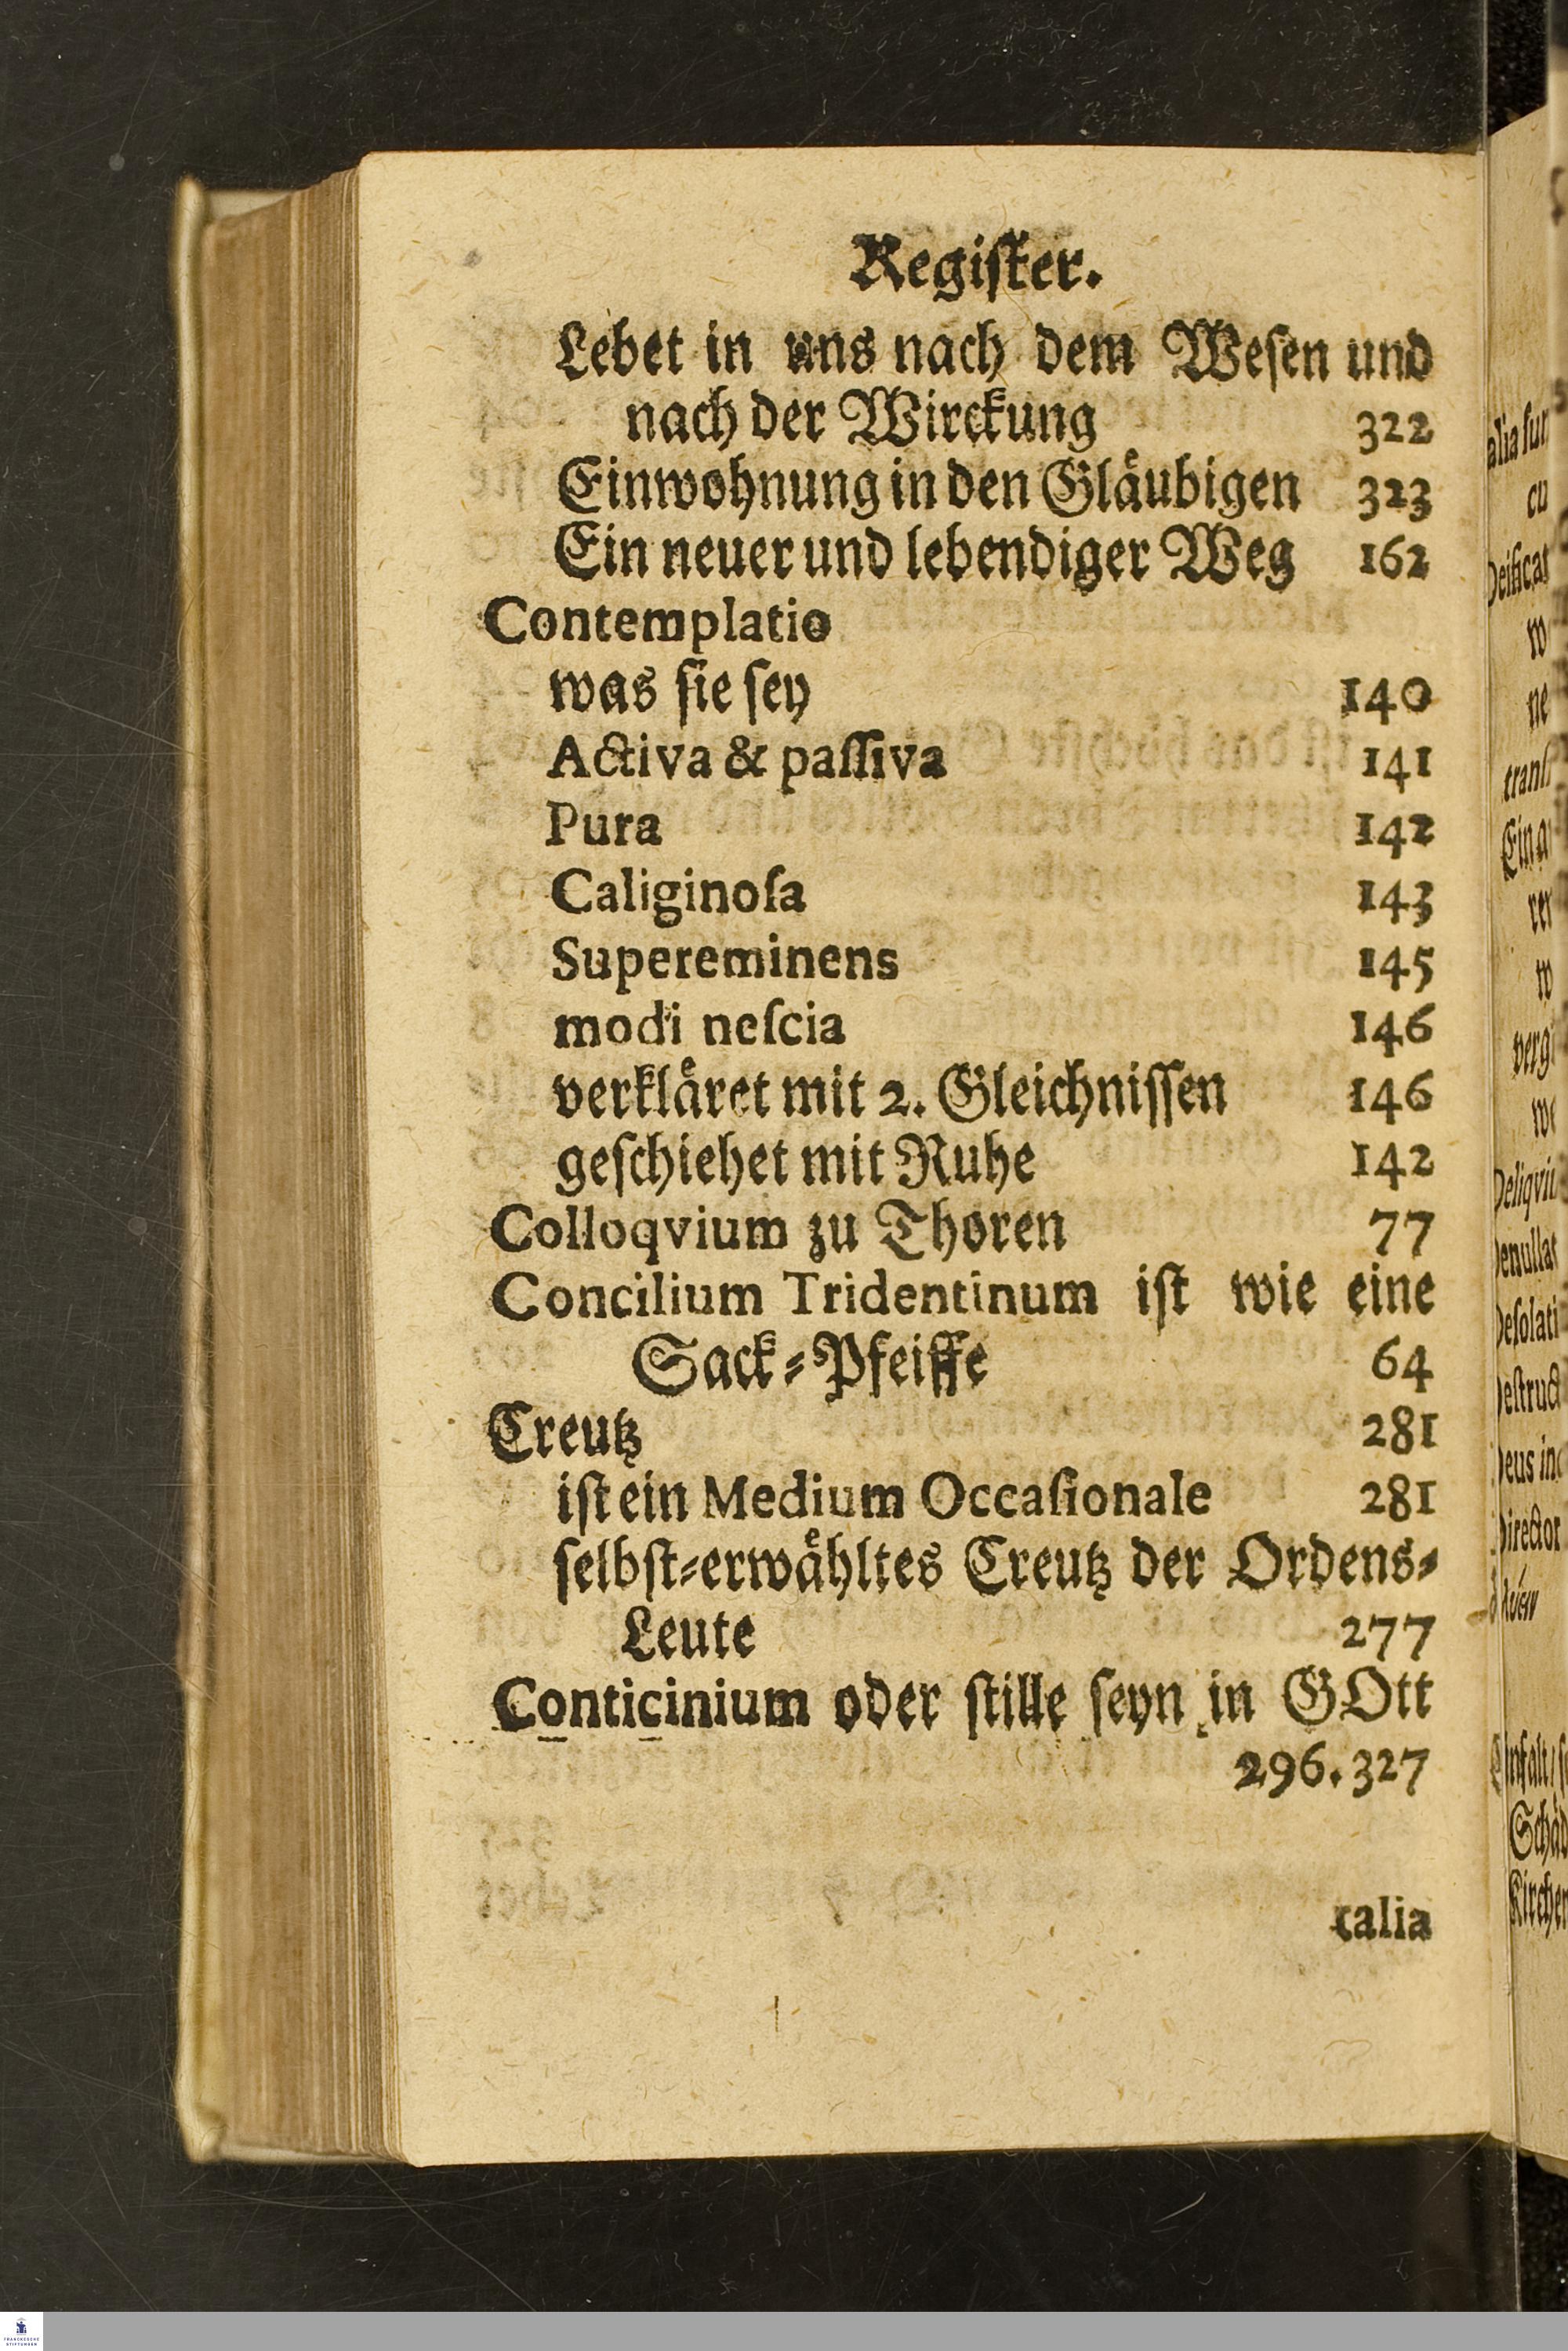 Register.
Lebet in uns nach dem Weſen und
nach der Wirckung 322
Einwohnung in den Glaͤubigen 323
Ein neuer und lebendiger Weg 162
Contemplatio
was ſie ſey 140
Activa & paſſiva 141
Pura 142
Caliginoſa 143
Supereminens 145
modi neſcia 146
verklaͤret mit 2. Gleichniſſen 146
geſchiehet mit Ruhe 142
Colloqvium zu Thoren 77
Concilium Tridentinum iſt wie eine
Sack⸗Pfeiffe 64
Creutz 281
iſt ein Medium Occaſionale 281
ſelbſt⸗erwaͤhltes Creutz der Ordens⸗
Leute 277
Conticinium oder ſtille ſeyn in GOtt
296. 327
talia
FRANCKESCHE
STIFTUNGEN